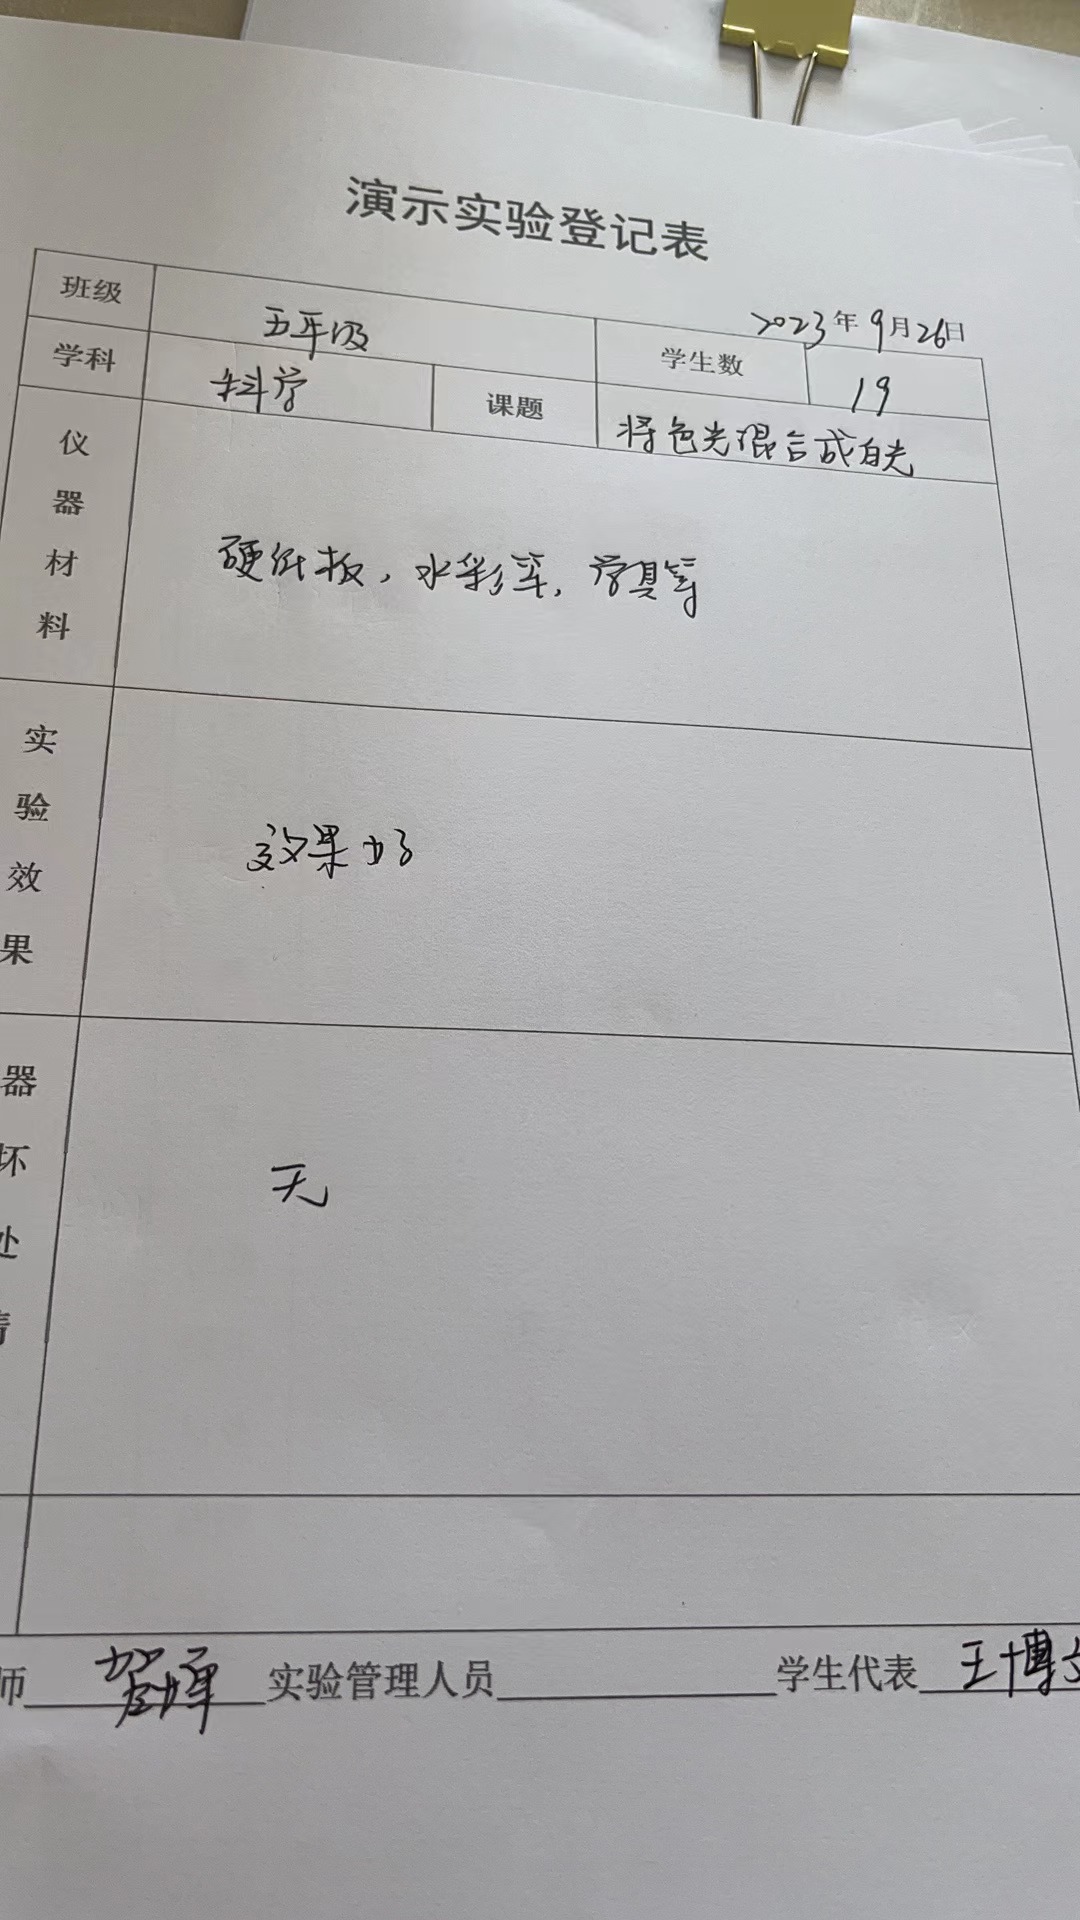 演示实验登记表
2023年9月26日
班级 五年级 学生数 19
学科 科学 课题 将色光混合成白光
仪器材料 硬纸板，水彩笔，学具等
实验效果 效果好
器
坏
处
情
无
师 实验管理人员 学生代表 王博文